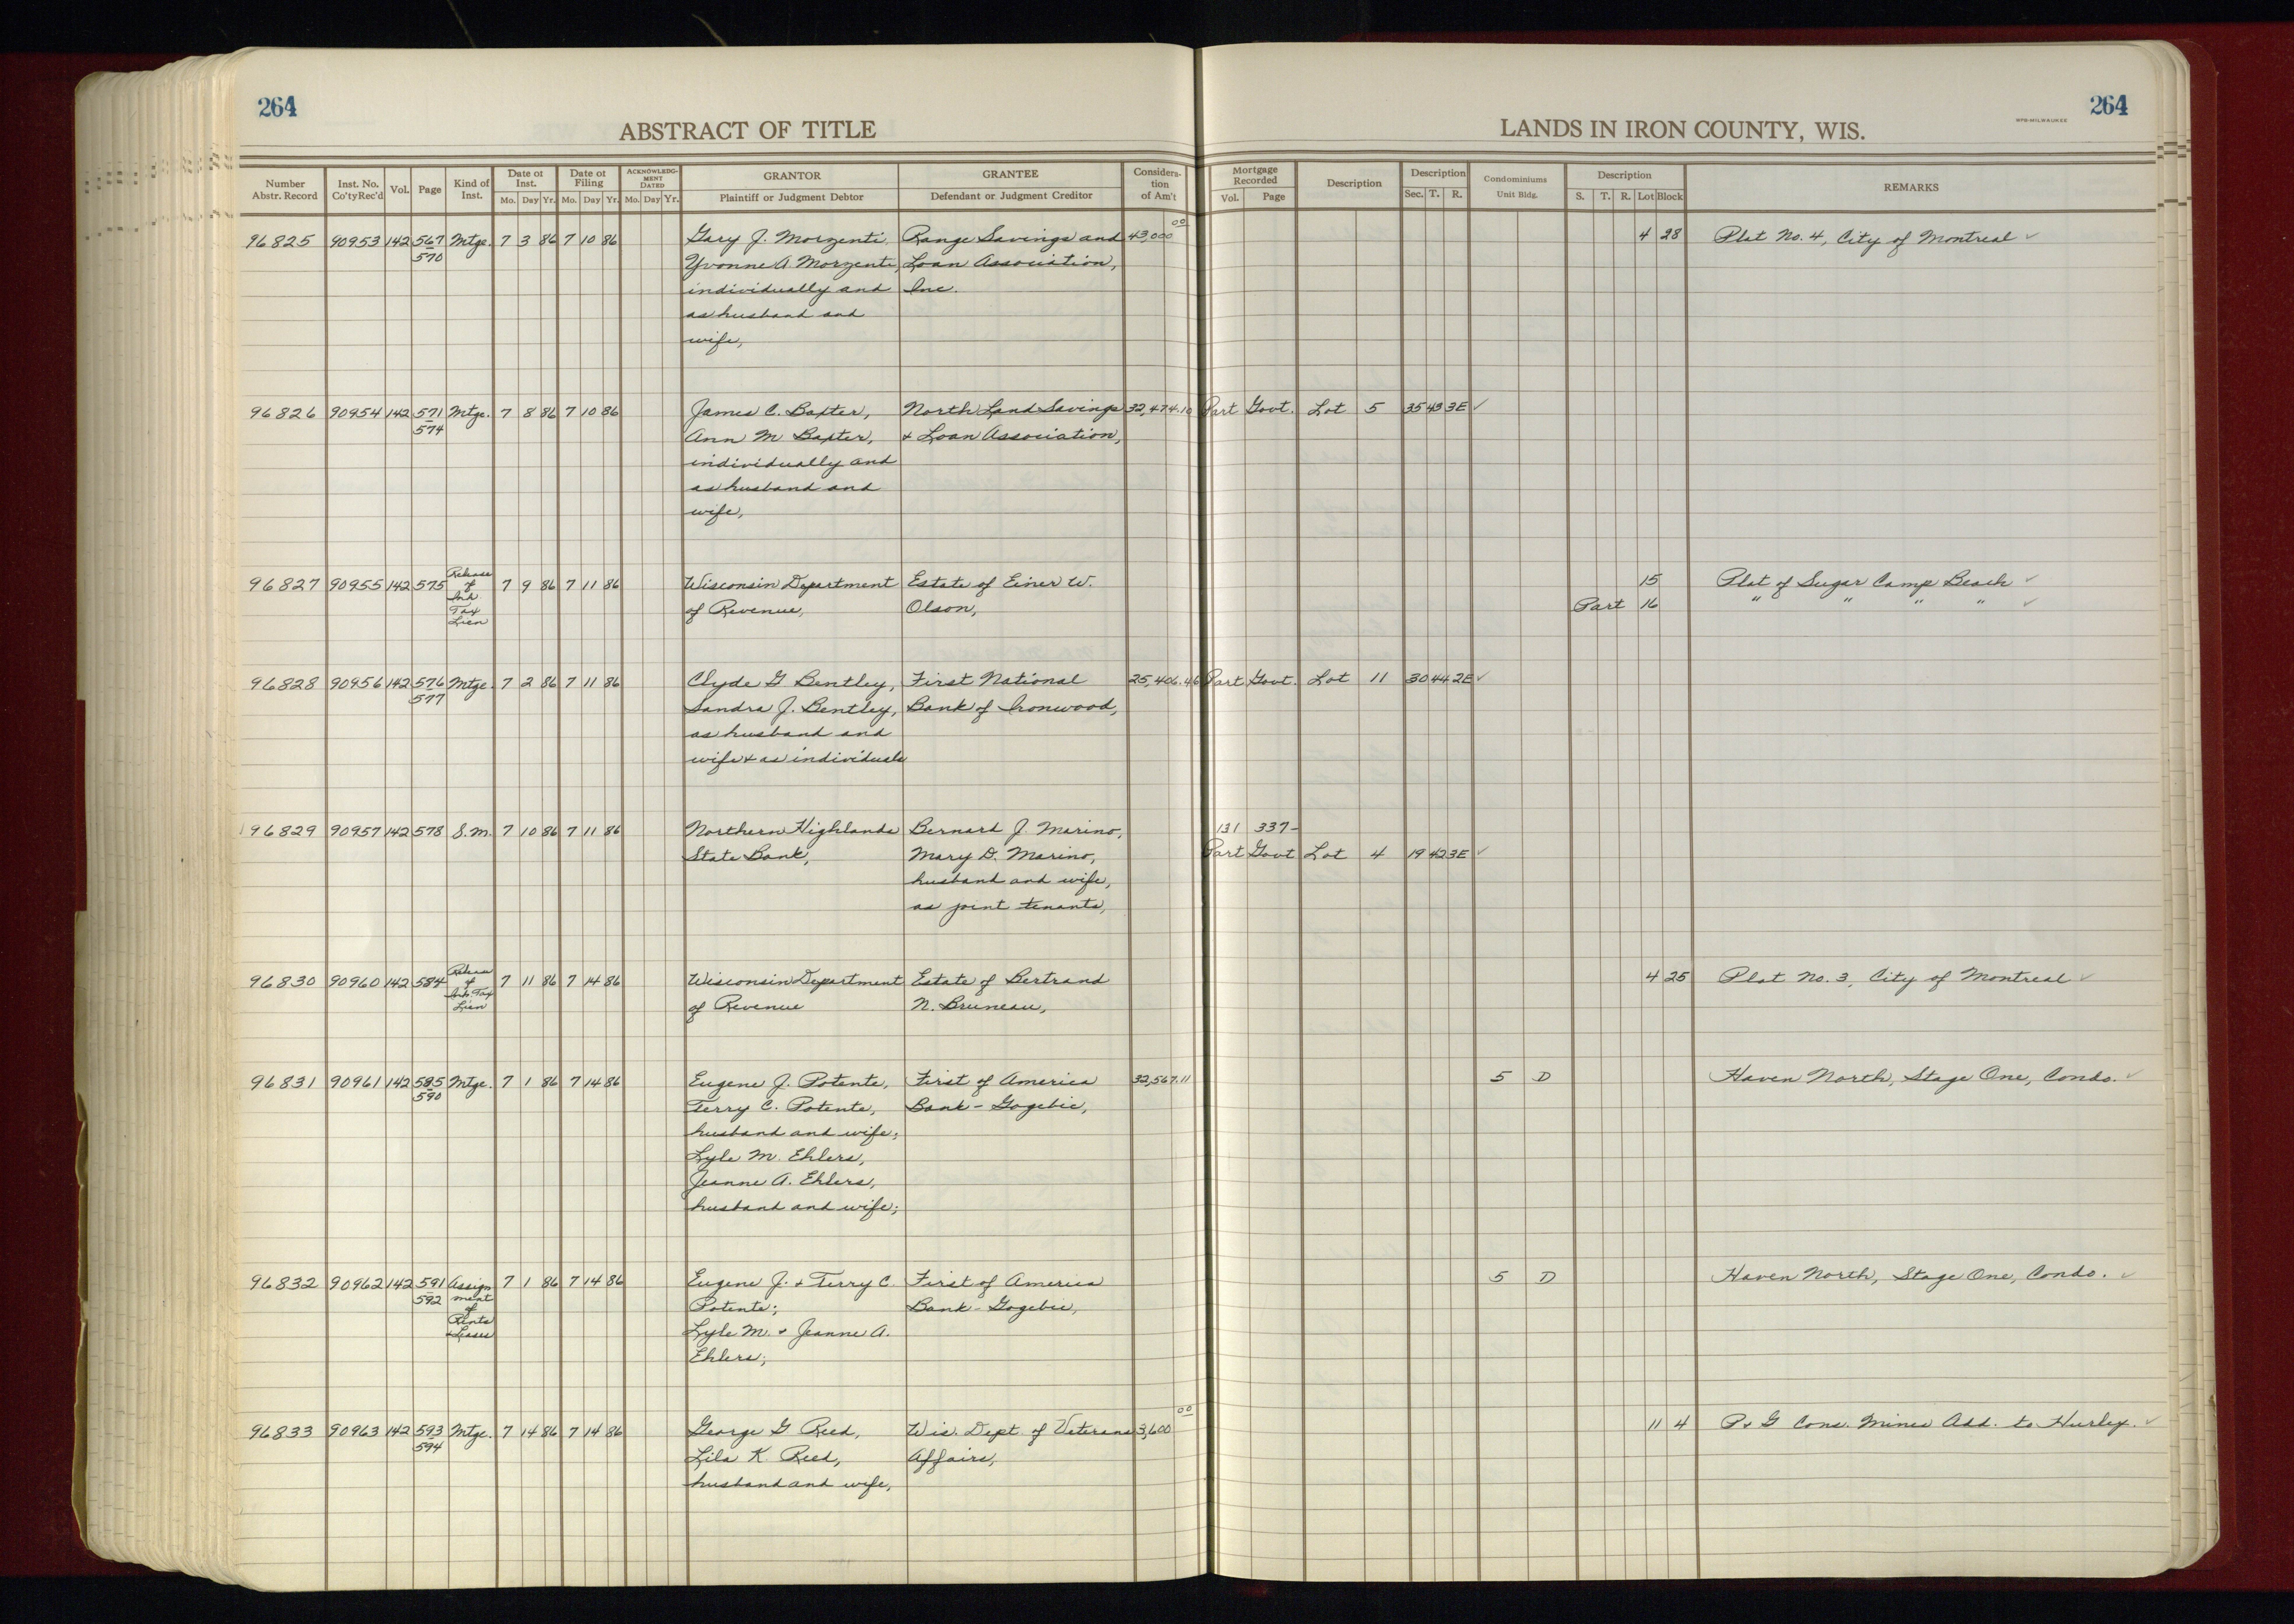 264
264
ABSTRACT OF TITLE
LANDS IN IRON COUNTY, WIS.
WPB-MILWAUKEE
Number Abstr. Record
Inst. No. Co'ty Rec'd
Vol.
Page
Kind of Inst.
Date of Inst. Mo. Day Yr.
Date of Filing Mo. Day Yr.
ACKNOWLEDG-MENT DATED Mo. Day Yr.
GRANTOR Plaintiff or Judgment Debtor
GRANTEE Defendant or Judgment Creditor
Considera-tion of Am't
Mortgage Recorded Vol. Page
Description
Description Sec. T. R.
Condominiums Unit Bldg.
Description S. T. R. Lot Block
REMARKS
96825 90953 142 567 Mtge. 7 3 86 7 10 86 Gary J. Morzenti, Range Savings and 43,000 00 4 28 Plat No. 4, City of Montreal ✓
570 Yvonne A. Morzenti, Loan Association,
individually and Inc.
as husband and
wife,
96826 90954 142 571 Mtge. 7 8 86 7 10 86 James C. Baxter, North Land Savings 32,474.10 Part Govt. Lot 5 35 43 3E ✓
574 Ann M Baxter, & Loan Association,
individually and
as husband and
wife,
96827 90955 142 575 Release of Inh. Tax Lien 7 9 86 7 11 86 Wisconsin Department Estate of Einer W. 15 Plat of Sugar Camp Beach ✓
of Revenue, Olson, Part 16 " " " " ✓
96828 90956 142 576 Mtge. 7 2 86 7 11 86 Clyde G Bentley, First National 25,406.46 Part Govt. Lot 11 30 44 2E ✓
577 Sandra J. Bentley, Bank of Ironwood,
as husband and
wife & as individuals
96829 90957 142 578 S.M. 7 10 86 7 11 86 Northern Highlands Bernard J. Marino, 131 337-
State Bank, Mary D. Marino, Part Govt Lot 4 19 42 3E ✓
husband and wife,
as joint tenants,
96830 90960 142 584 Release of Inh. Tax Lien 7 11 86 7 14 86 Wisconsin Department Estate of Bertrand 4 25 Plat No. 3, City of Montreal ✓
of Revenue N. Bruneau,
96831 90961 142 585 Mtge. 7 1 86 7 14 86 Eugene J. Potente, First of America 32,567.11 5 D Haven North, Stage One, Condo. ✓
590 Terry C. Potente, Bank - Gogebic,
husband and wife;
Lyle M. Ehlers,
Jeanne A. Ehlers,
husband and wife;
96832 90962 142 591 Assignment of Rents & Leases 7 1 86 7 14 86 Eugene J. & Terry C. First of America 5 D Haven North, Stage One, Condo. ✓
592 Potente; Bank - Gogebic,
Lyle M. & Jeanne A.
Ehlers;
96833 90963 142 593 Mtge. 7 14 86 7 14 86 George G Reed, Wis. Dept. of Veterans 3,600 00 11 4 P & G Cons. Mines Add. to Hurley. ✓
594 Lila K. Reed, Affairs,
husband and wife,